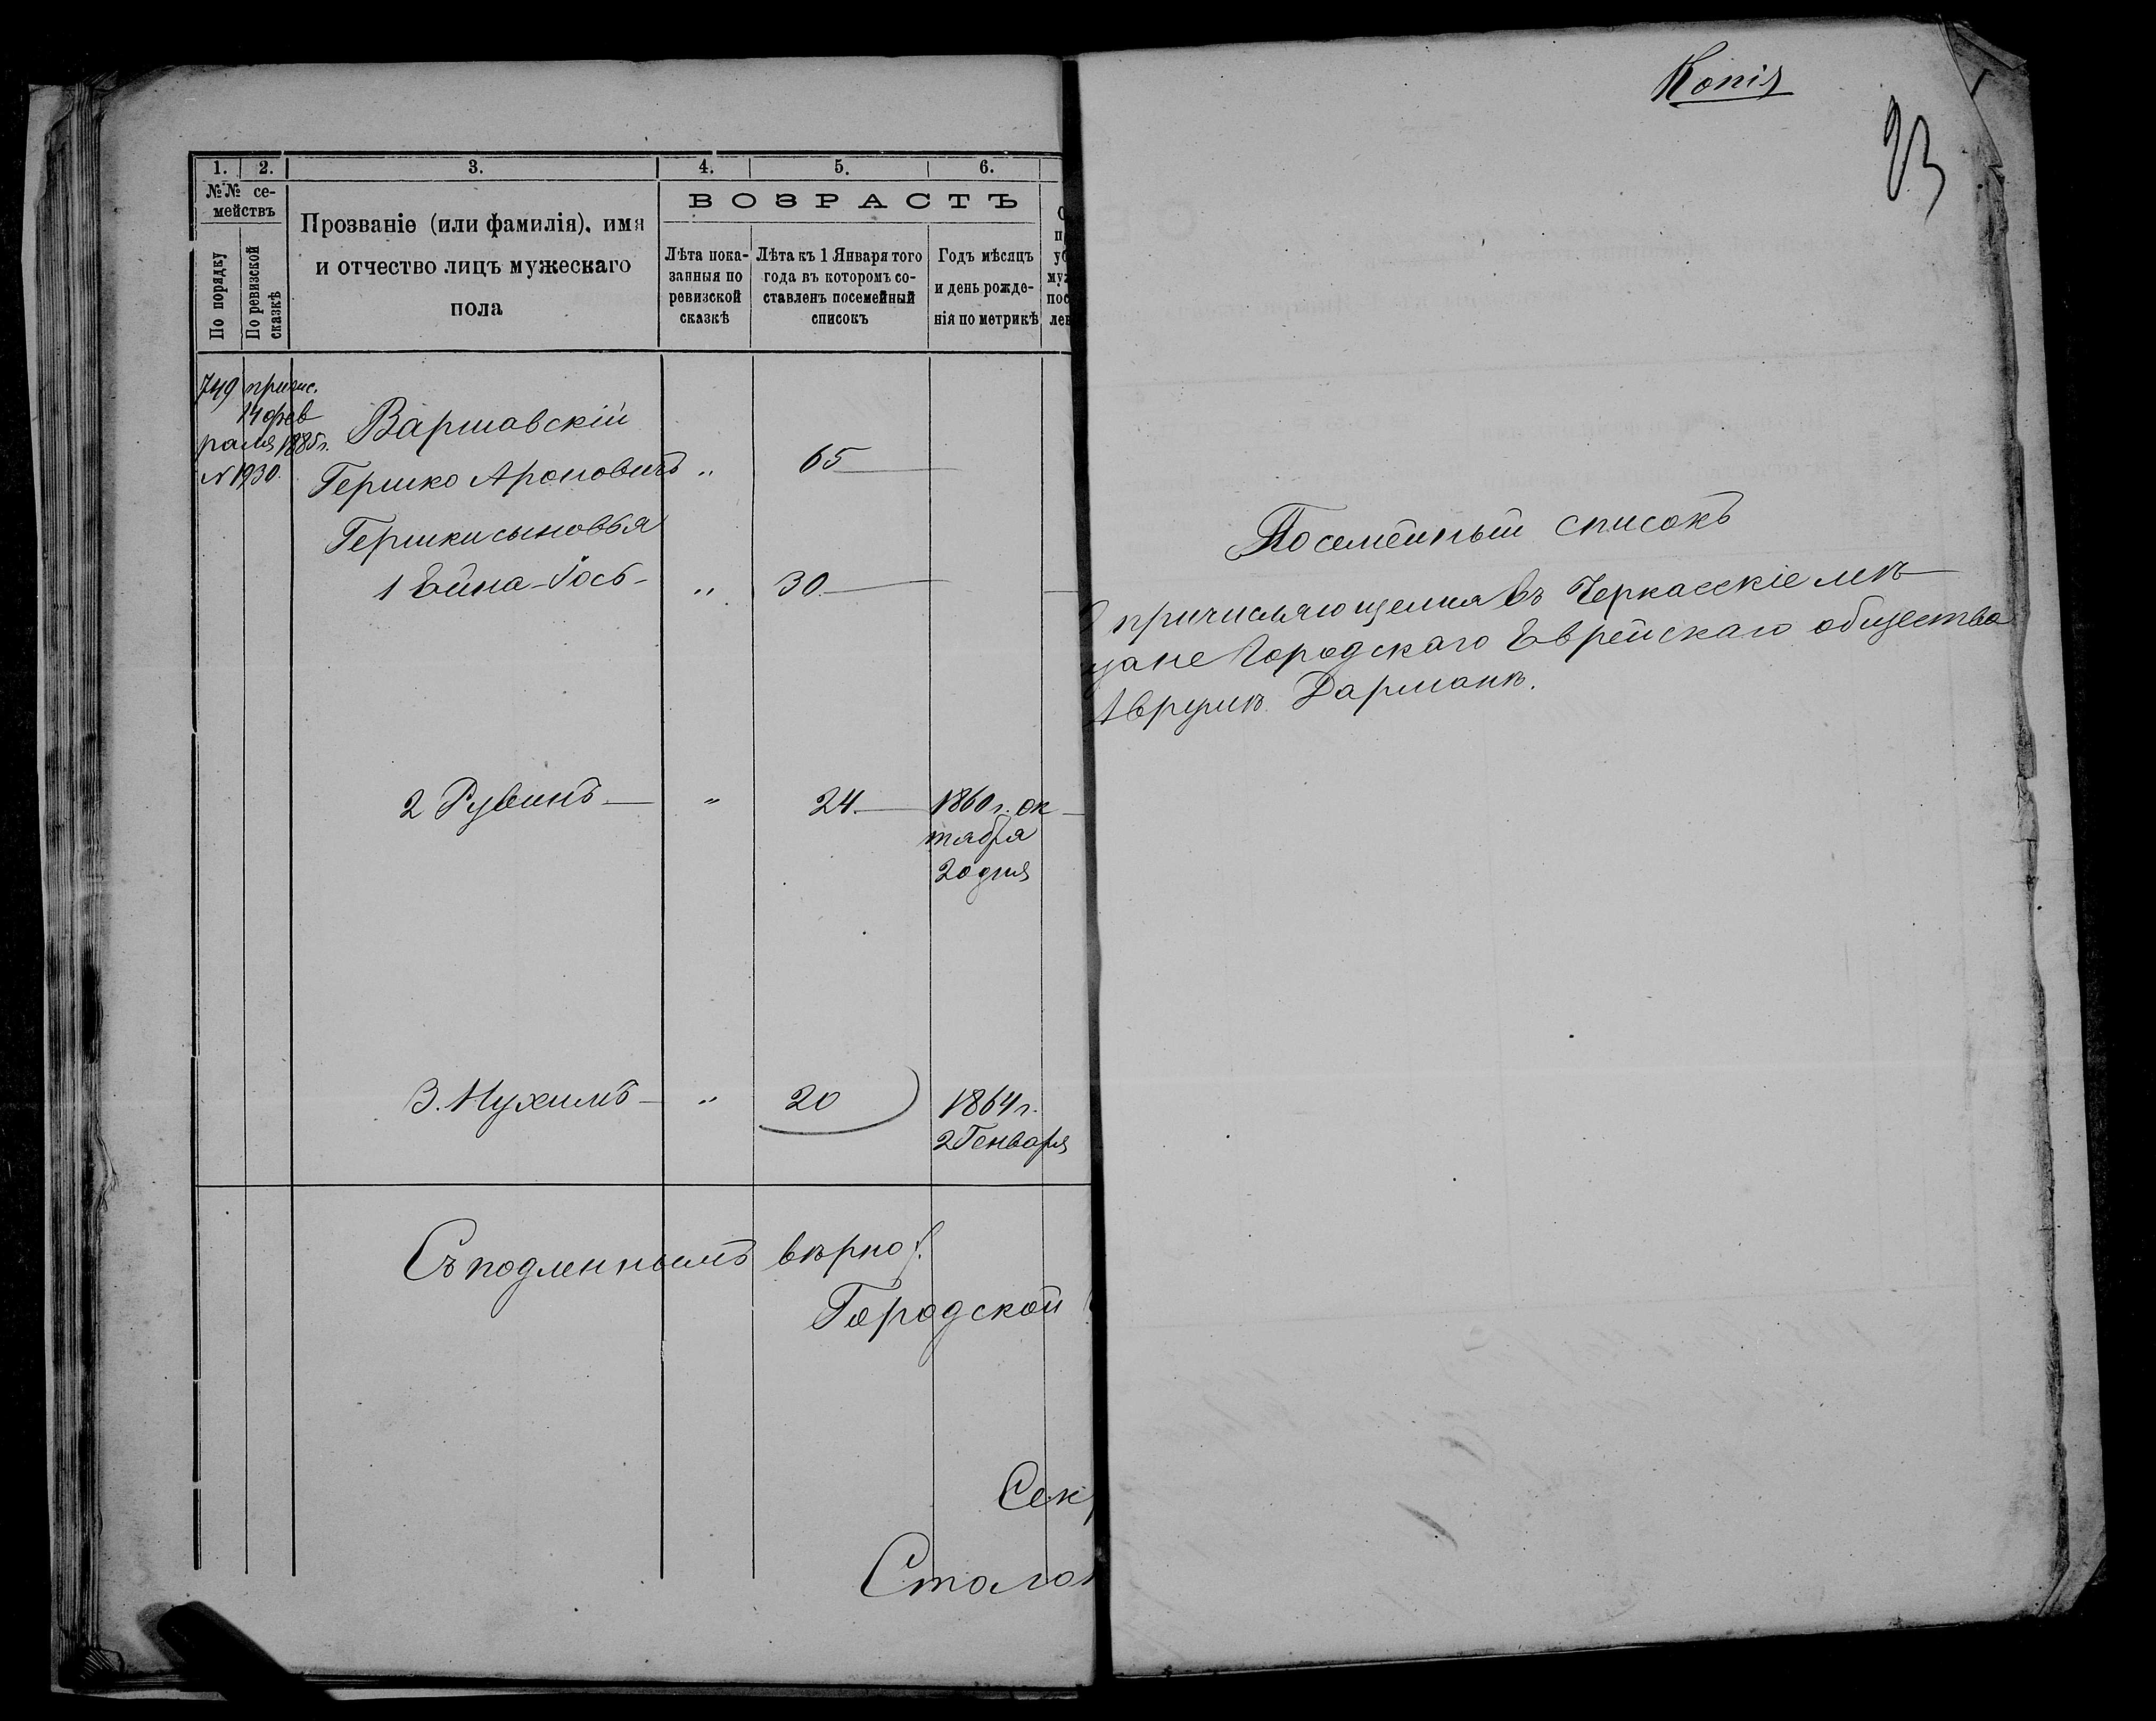 1. 2. 3. 4. 5. 6.
№№ се-
мействъ
По порядку
По ревизской
сказкѣ
Прозваніе (или фамилія), имя
и отчество лицъ мужескаго
пола
ВОЗРАСТЪ
Лѣта пока-
занныя по
ревизской
сказкѣ
Лѣта къ 1 Января того
года въ которомъ со-
ставленъ посемейный
списокъ
Годъ мѣсяцъ
и день рожде-
нія по метрикѣ
749 припис.
14 фев
раля 1885 г.
N 1930.
Варшавскій
Гершко Ароновичъ „ 65
Гершки сыновья
1 Ейна-Іось- „ 30.
2 Рувинъ „ 24. 1860 г. ок
тября
20 дня
3. Нухимъ „ 20 1864 г.
2 Генваря
Съ подленнымъ вѣрно:
Городской
Сек
Столон
Копія
23
Посемейный списокъ
О причисляющемся въ Черкасскіе мѣ
щане Городскаго Еврейскаго общества
Аврумѣ Дарманѣ.